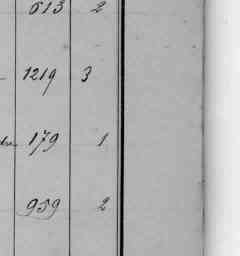 613 2
1219 3
179 1
959 2